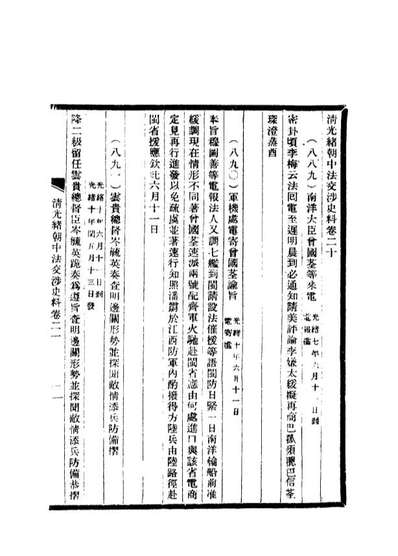 清光緒朝中法交涉史料卷二十
(八八九)南洋大臣曾國荃等來電
光緒十年六月十一日到
電報檔
密卦頃李梅云法回電至遲明晨到必通知請美評論李嫌太緩擬再商巴孤須聽巴信荃
琛澄蒸酉
(八九〇)軍機處電寄曾國荃諭旨
光緒十年六月十一日
電寄檔
奉旨穆圖善等電報法人又調七艦到閩請設法催援等語閩防日緊一日南洋輪船前准
緩調現在情形不同著曾國荃速派兩號配齊軍火馳赴閩省應由何處進口與該省電商
定見再行進發以免疏虞並著速行知照潘霨於江西防軍內酌撥得力陸兵由陸路徑赴
閩省援應欽此六月十一日
(八九一)雲貴總督岑毓英奏查明邊關形勢並探聞敵情添兵防備摺
光緒十年六月十二日到
光緒十年閏五月十三日發
降二級留任雲貴總督臣岑毓英跪奏為遵旨查明邊關形勢並探聞敵情添兵防備恭摺
清光緒朝中法交涉史料卷二十
一